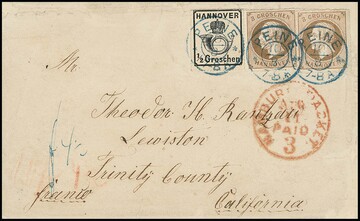 HANNOVER
½ Groschen
3 GROSCHEN
3 GROSCHEN
PEINE
PEINE
PEINE
Mr.
Theodor H. Ranshau
Lewiston
Trinity County
California
franco
HAMBURG PACKET
PAID
3